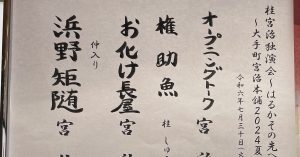 桂宮治独演会～はるかその先へ
～大手町宮治本舗2024夏
令和六年七月三十日
オープニングトーク 宮治
権助魚 桂 しゅ
お化け長屋 宮
仲入り
浜野矩随 宮